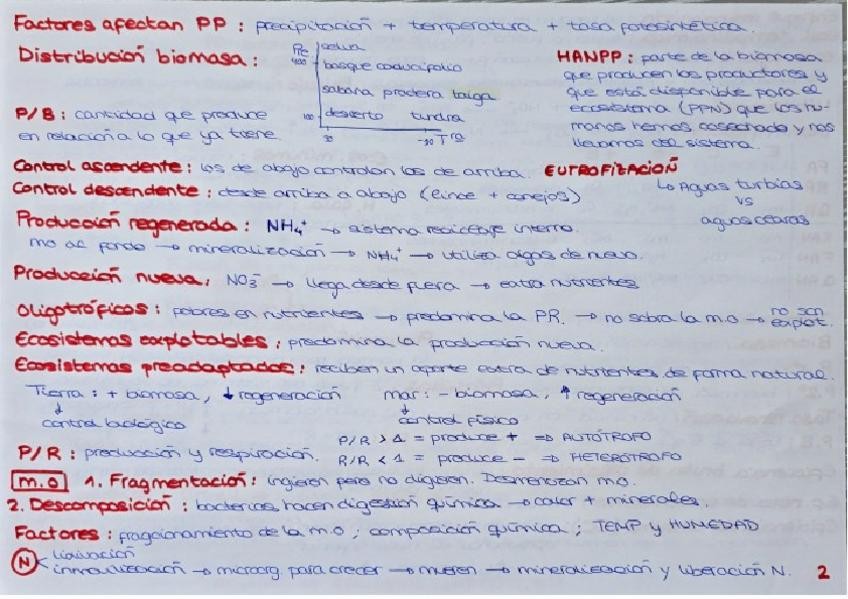 Factores afectan PP : precipitación + temperatura + tasa fotosintética
Distribución biomasa :
Pe
400
selva
bosque caducifolio
sabana pradera taiga
desierto tundra
30 -30 Tª
HANPP : parte de la biomasa
que producen los productores y
que está disponible para el
ecosistema (PPN) que los hu-
manos hemos cosechado y nos
llevamos del sistema.
P/B : cantidad que produce
en relación a lo que ya tiene
Control ascendente : los de abajo controlan los de arriba.
EUTROFIZACIÓN
↳ Aguas turbias
vs
aguas claras
Control descendente : desde arriba a abajo (lince + conejos)
Producción regenerada : NH₄⁺ → sistema reciclaje interno.
mo al fondo → mineralización → NH₄⁺ → utiliza algas de nuevo.
Producción nueva : NO₃⁻ → llega desde fuera → extra nutrientes
Oligotróficos : pobres en nutrientes → predomina la PR. → no sobra la m.o → no son
explot.
Ecosistemas explotables : predomina la producción nueva.
Ecosistemas preadaptados : reciben un aporte extra de nutrientes de forma natural.
Tierra : + biomasa, ↓ regeneración
↓
control biológico
mar : - biomasa, ↑ regeneración
↓
control físico
P/R : producción y respiración.
P/R > 1 = produce + => AUTÓTROFO
P/R < 1 = produce - => HETERÓTROFO
m.o 1. Fragmentación : ingieren pero no digieren. Desmenuzan mo.
2. Descomposición : bacterias, hacen digestión química → calor + minerales.
Factores : fraccionamiento de la m.o ; composición química ; TEMP y HUMEDAD
N lixiviación
inmovilización → microorg. para crecer → mueren → mineralización y liberación N.
2